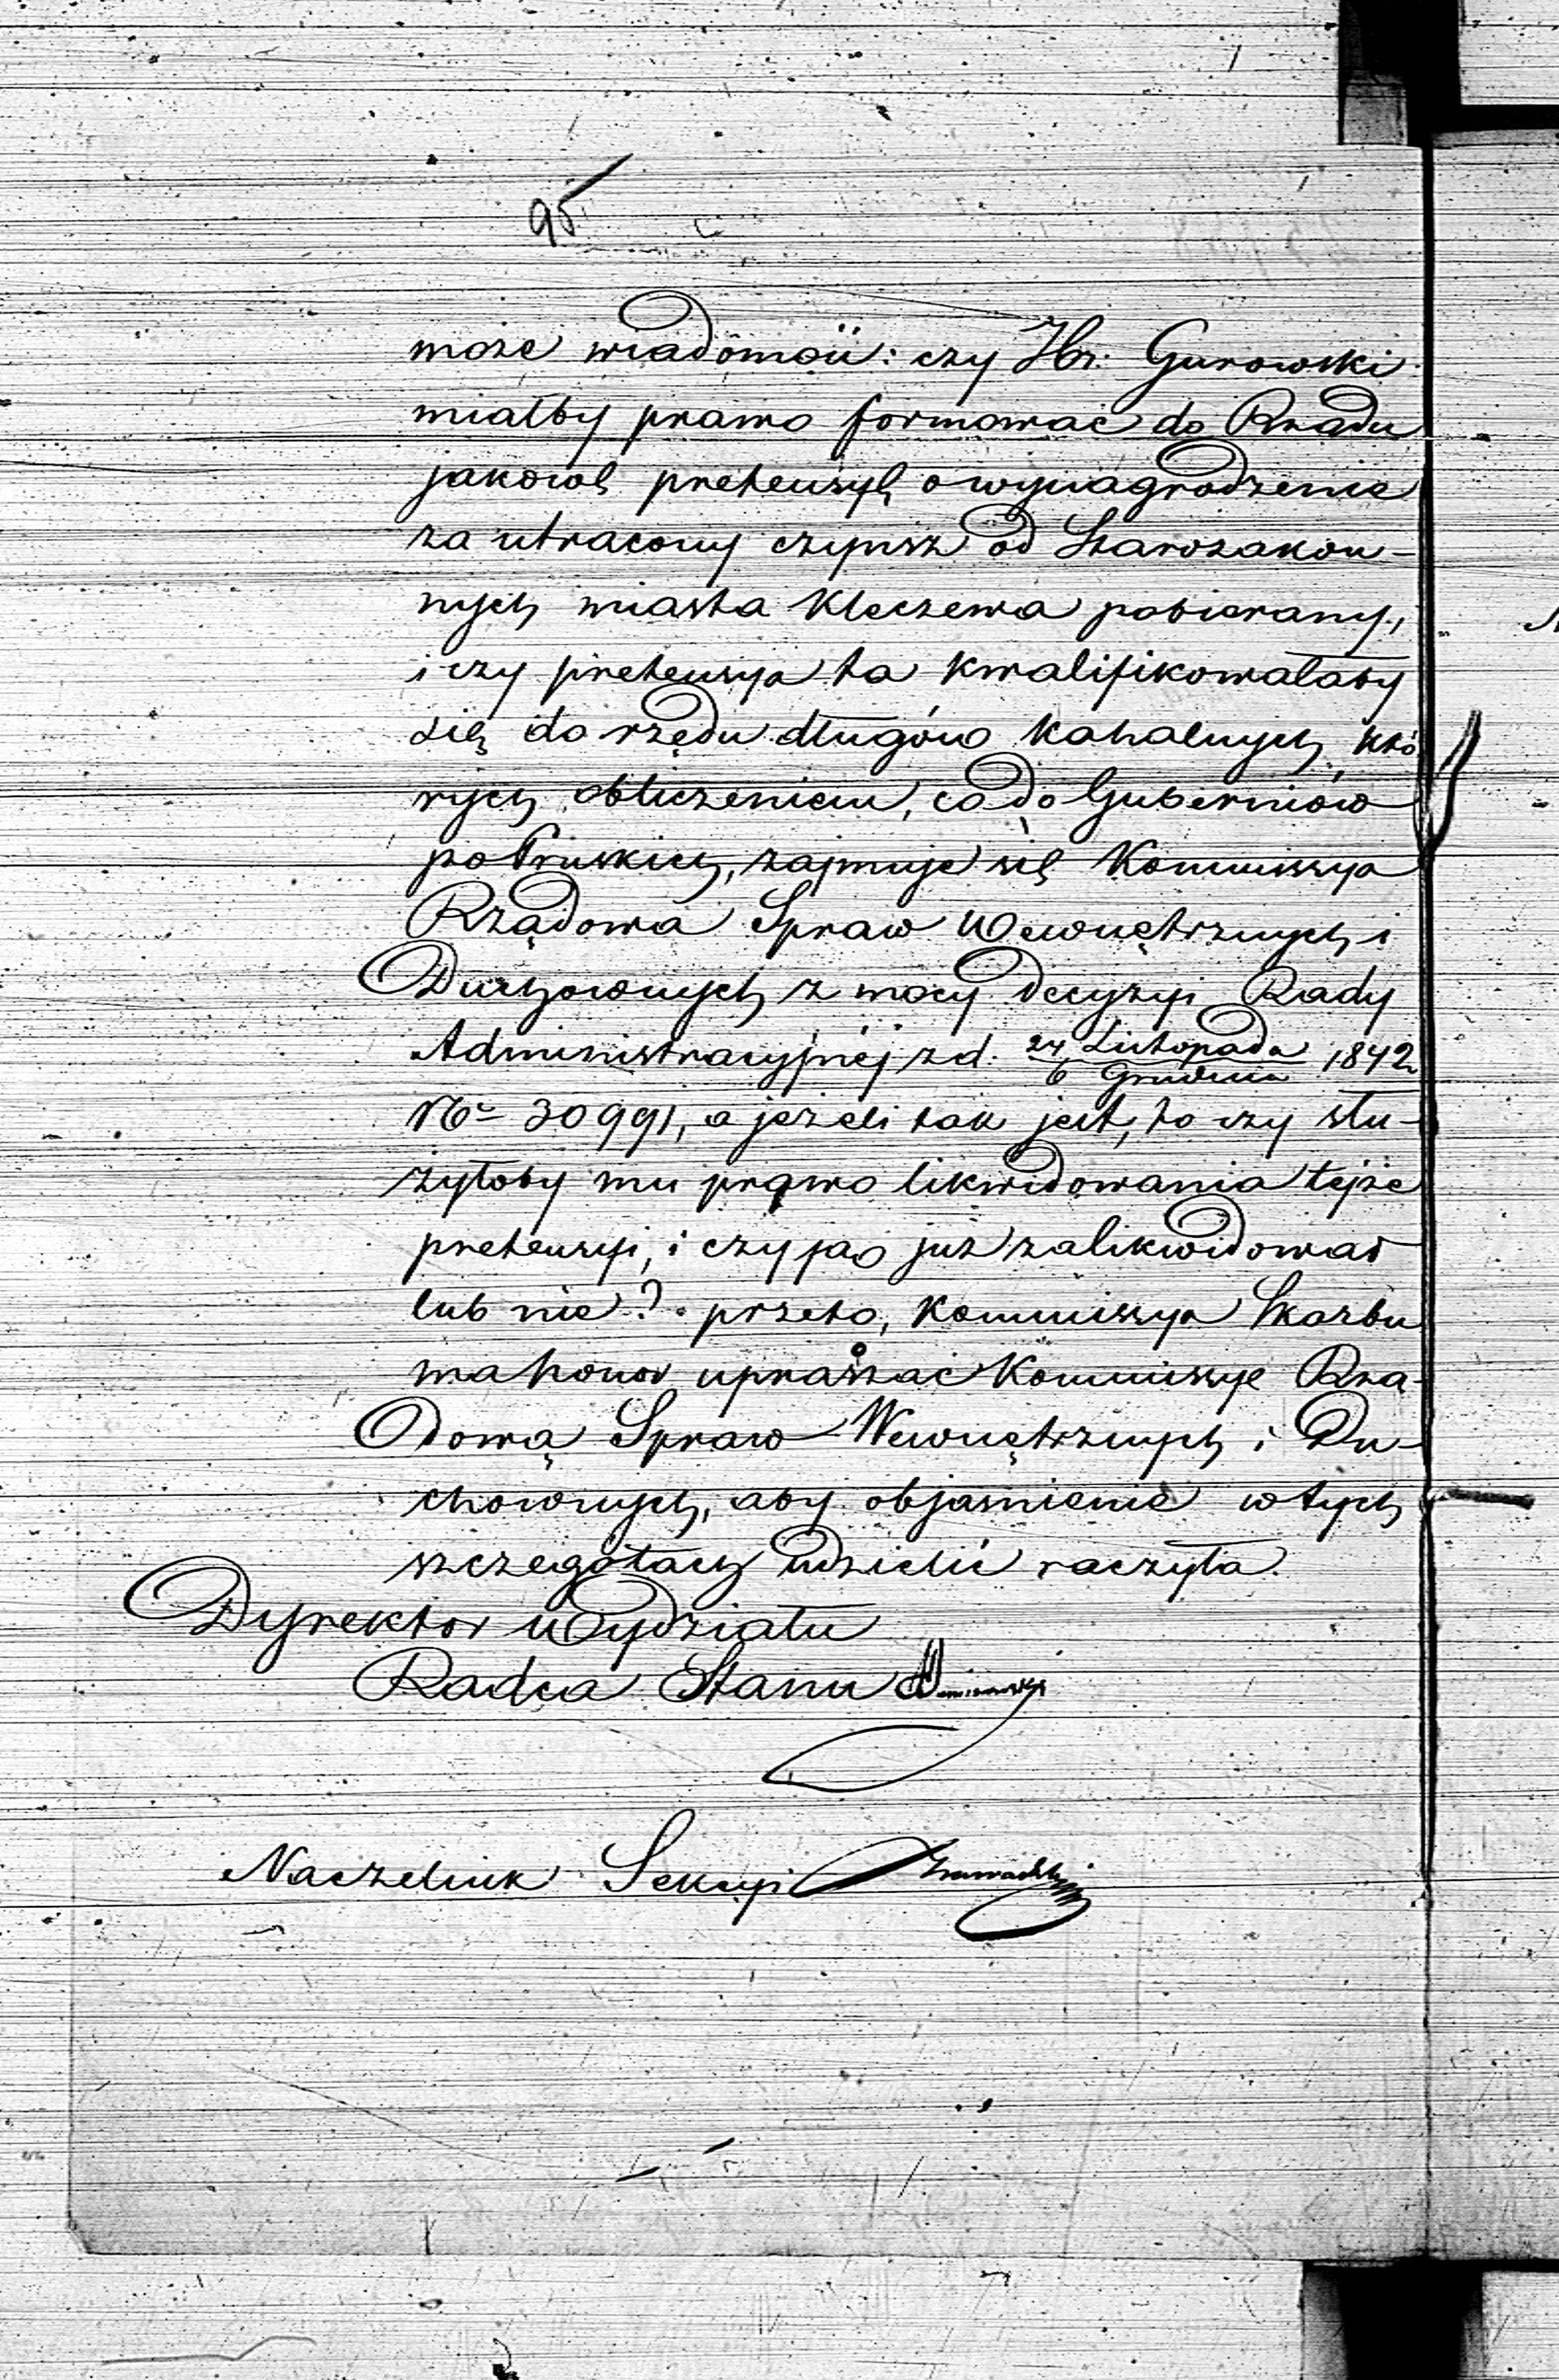 95
może wiadomości: czy Hr: Gurowski
miałby prawo formować do Rządu
jakową pretensyę o wynagrodzenie
za utracony czynsz od Starozakon-
nych miasta Kleczewa pobierany,
i czy pretensya ta kwalifikowałaby
się do rzędu długów kahalnych, któ
rych obliczeniem, co do Guberniów
po Pruskich, zajmuje się Kommissya
Rządowa Spraw Wewnętrznych i
Duchownych z mocy decyzyi Rady
Administracyjnéj z d. 24 Listopada / 6 Grudnia 1842
No 30991, a jeżeli tak jest, to czy słu-
żyłoby mu prawo likwidowania tejże
pretensyi, i czy ją już zalikwidował
lub nie? przeto, Kommissya Skarbu
ma honor upraszać Kommissyę Rzą-
dową Spraw Wewnętrznych i Du-
chownych, aby objaśnienie w tych
szczegółach udzielić raczyła.
Dyrektor Wydziału
Radca Stanu
Naczelnik Sekcyi